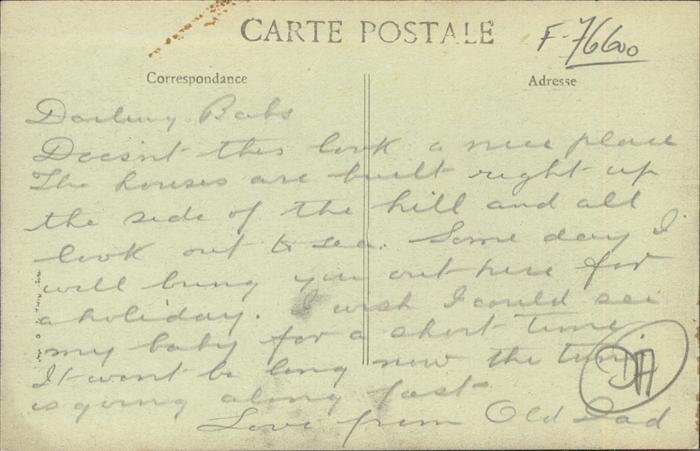 CARTE POSTALE
F-76600
Correspondance
Adresse
Darling Babs
Doesn't this look a nice place
The houses are built right up
the side of the hill and all
look out to sea. Some day I
will bring you out here for
a holiday. I wish I could see
my baby for a short time
It wont be long now the time
is going along fast
Love from Old Dad